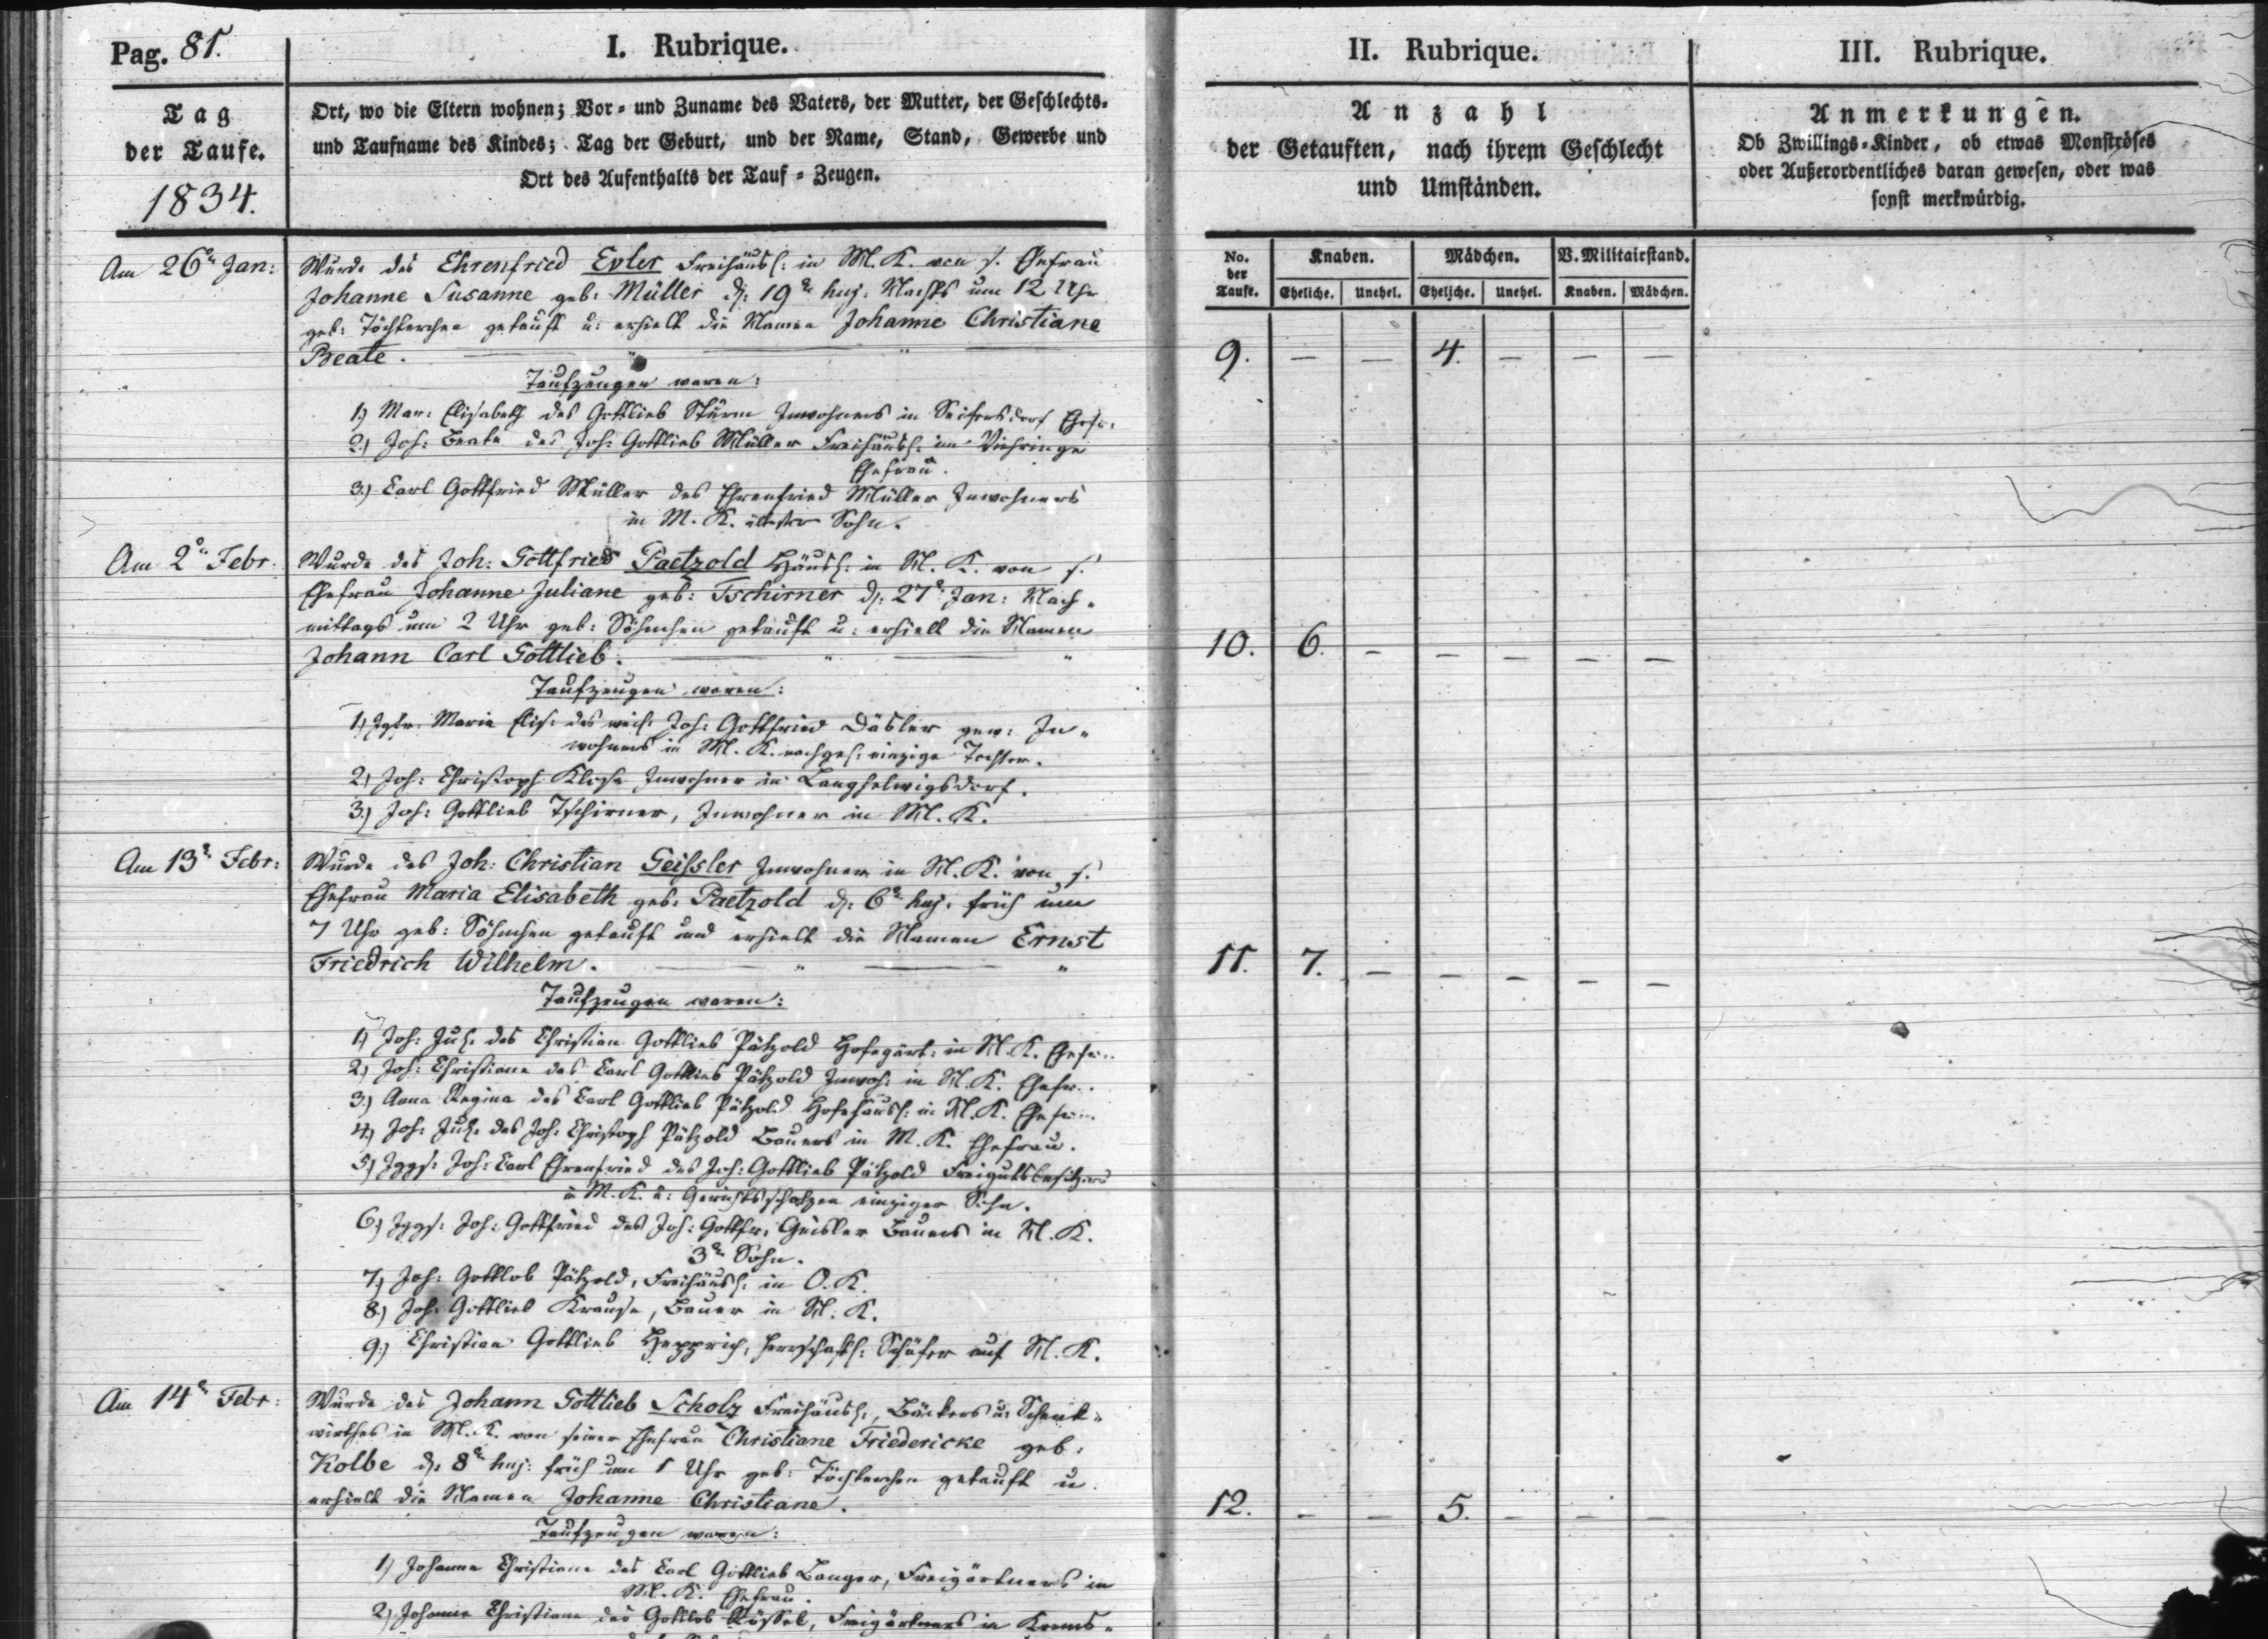 Pag. 81.
I. Rubrique.
II. Rubrique.
III. Rubrique.
Tag
der Taufe.
1834.
Ort, wo die Eltern wohnen; Vor- und Zuname des Vaters, der Mutter, der Geschlechts-
und Taufname des Kindes; Tag der Geburt, und der Name, Stand, Gewerbe und
Ort des Aufenthalts der Tauf-Zeugen.
Anzahl
der Getauften, nach ihrem Geschlecht
und Umständen.
Anmerkungen.
Ob Zwillings-Kinder, ob etwas Monströses
oder Außerordentliches daran gewesen, oder was
sonst merkwürdig.
No.
der
Taufe.
Knaben.
Mädchen.
V. Militairstand.
Eheliche. Unehel. Eheliche. Unehel. Knaben. Mädchen.
Am 26n Jan:
Wurde des Ehrenfried Evler Freihäusl: in M. K. von s. Ehefrau
Johanne Susanne geb: Müller d: 19n huj: Nachts um 12 Uhr
geb: Töchterchen getauft u: erhielt die Namen Johanne Christiane
Beate.
9. — — 4. — — —
Taufzeugen waren:
1) Mar: Elisabeth des Gottlieb Sturm Inwohners in Seifersdorf Ehefr:
2) Joh: Beate des Joh: Gottlieb Müller Freihäusl: im
Ehefrau.
3) Carl Gottfried Müller des Ehrenfried Müller Inwohners
in M. K. ältester Sohn.
Am 2n Febr:
Wurde des Joh: Gottfried Paetzold Häusl: in M. K. von s.
Ehefrau Johanne Juliane geb: Tschirner d: 27n Jan: Nach-
mittags um 2 Uhr geb: Söhnchen getauft u: erhielt die Namen
Johann Carl Gottlieb.
10. 6. — — — — —
Taufzeugen waren:
1) Jgfr. Maria Elis: des weil: Joh: Gottfried Däsler gew: In-
wohners in M. K. nachgel: einzige Tochter.
2) Joh: Christoph Klose Inwohner in Langhelwigsdorf.
3) Joh: Gottlieb Tschirner, Inwohner in M. K.
Am 13n Febr:
Wurde des Joh: Christian Geissler Inwohner in M. K. von s.
Ehefrau Maria Elisabeth geb: Paetzold d: 6n huj: früh um
7 Uhr geb: Söhnchen getauft und erhielt die Namen Ernst
Friedrich Wilhelm.
11. 7. — — — — —
Taufzeugen waren:
1) Joh: Jul: des Christian Gottlieb Pätzold Hofegärt: in M. K. Ehefr:
2) Joh: Christiane des Carl Gottlieb Pätzold Inwoh: in M. K. Ehefr:
3) Anna Regina des Carl Gottlieb Pätzold Hofehäusl: in M. K. Ehefr:
4) Joh: Jul: des Joh: Christoph Pätzold Bauers in M. K. Ehefrau.
5) Jggs: Joh: Carl Ehrenfried des Joh: Gottlieb Pätzold Freigutsbesitzers
in M. K. u: Gerichtsscholzen einziger Sohn.
6) Jggs: Joh: Gottfried des Joh: Gottfr. Geisler Bauers in M. K.
3r Sohn.
7) Joh: Gottlob Pätzold, Freihäusl: in O. K.
8) Joh: Gottlieb Krause, Bauer in M. K.
9) Christian Gottlieb Hepprich, herrschaftl: Schäfer auf M. K.
Am 14n Febr:
Wurde des Johann Gottlieb Scholz Freihäusl:, Bäckers u: Schenk-
wirthes in M. K. von seiner Ehefrau Christiane Friedericke geb:
Kolbe d: 8n huj: früh um 1 Uhr geb: Töchterchen getauft u
erhielt die Namen Johanne Christiane.
12. — — 5. — — —
Taufzeugen waren:
1) Johanne Christiane des Carl Gottlieb Langer, Freigärtners in
M. K. Ehefrau.
2) Johanne Christiane des Gottlob Rössel, Freigärtners in